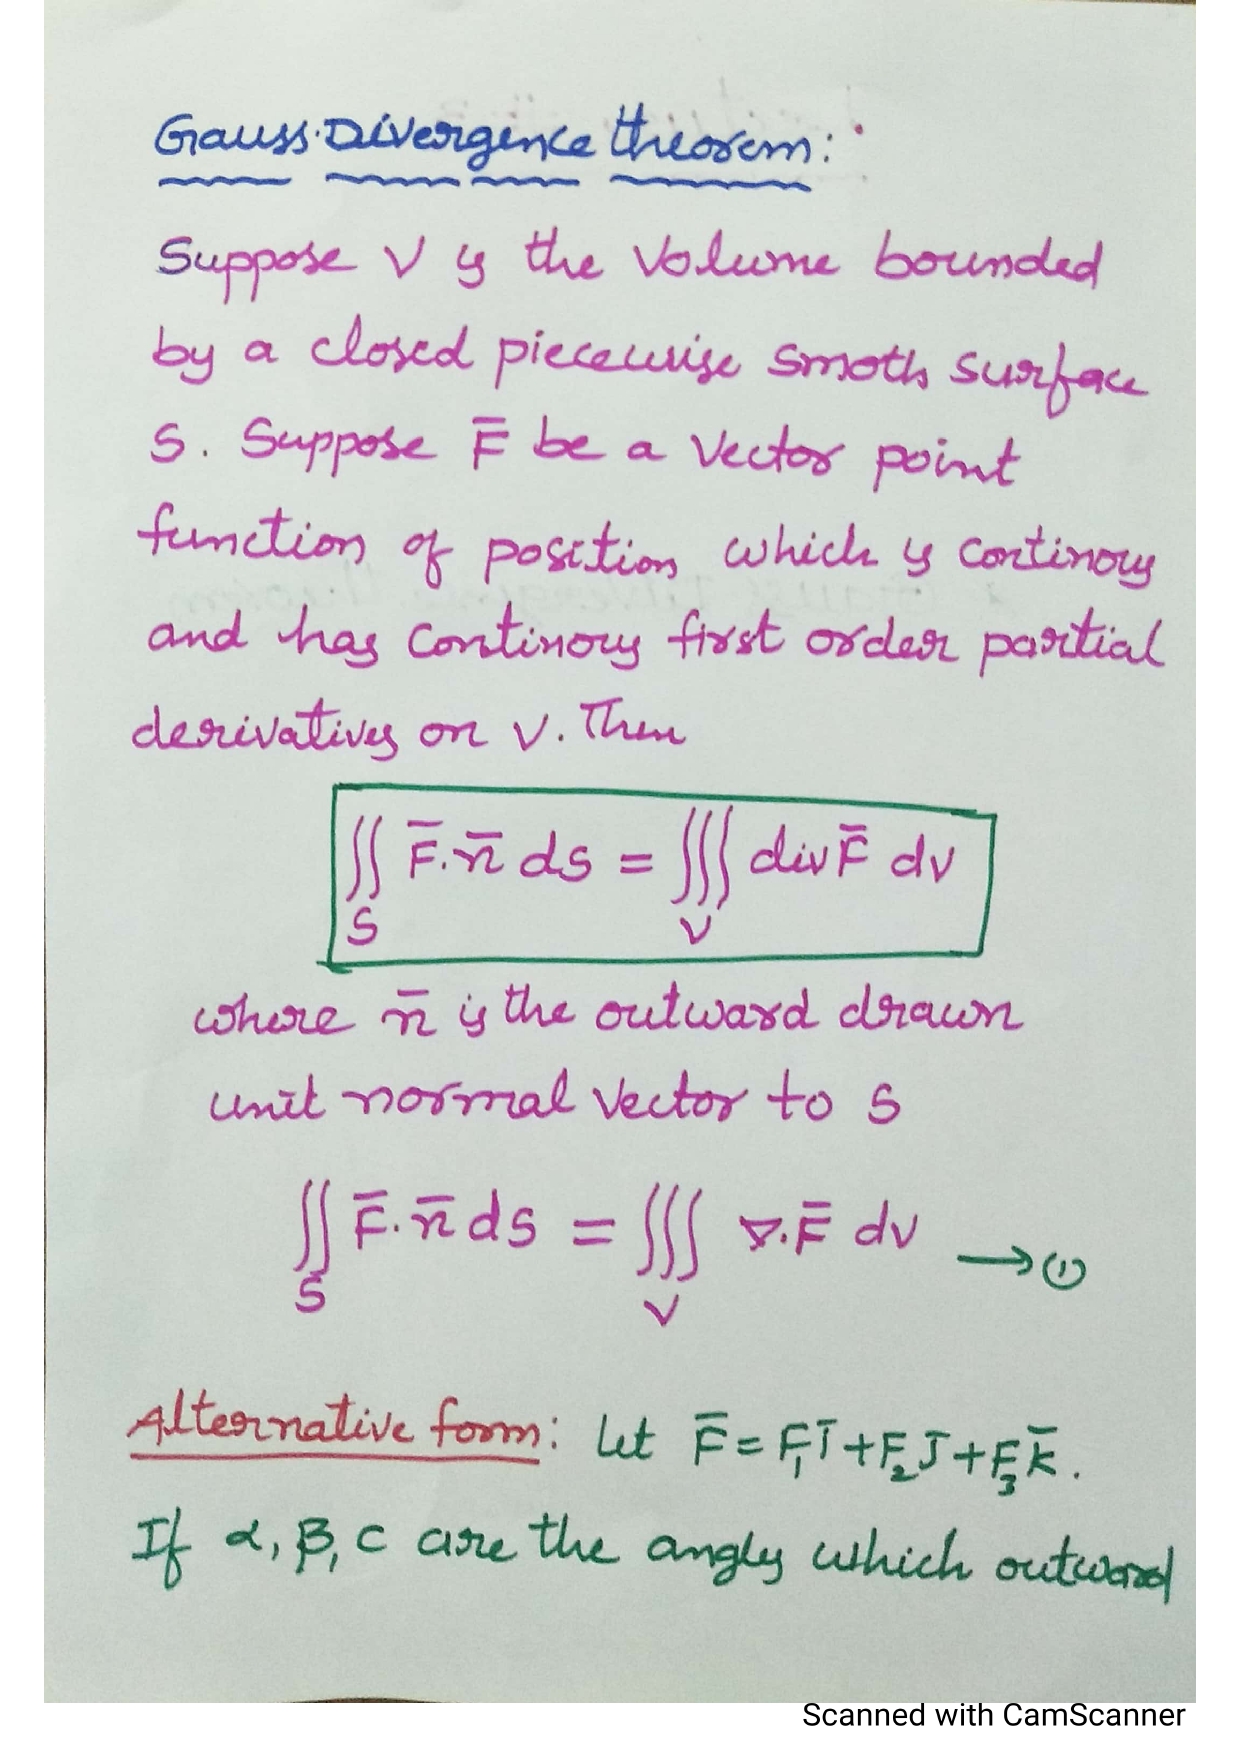 Gauss Divergence theorem:
Suppose V is the Volume bounded
by a closed piecewise smoth surface
S. Suppose F̅ be a Vector point
function of position which is continous
and has continous first order partial
derivatives on V. Then
∬_S F̅.n̅ ds = ∭_V div F̅ dv
where n̅ is the outward drawn
unit normal vector to S
∬_S F̅.n̅ ds = ∭_V ∇.F̅ dv → ①
Alternative form: Let F̅ = F₁i̅ + F₂J + F₃k̅.
If α, β, c are the angles which outward
Scanned with CamScanner